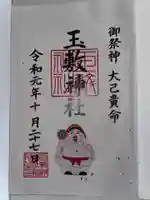 御祭神 大己貴命
玉敷神社
令和元年十月二十七日